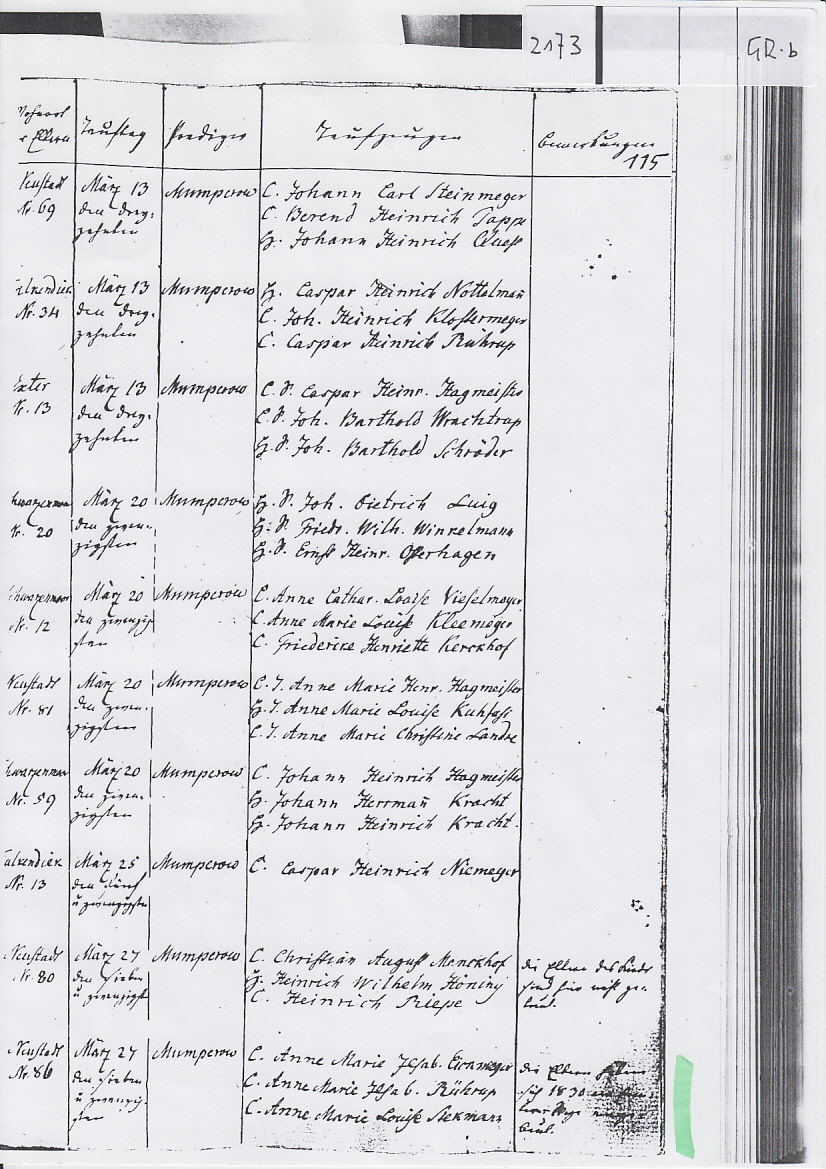 2173
GR.b
Wohnort
r Eltern
Tauftag
Prediger
Taufzeugen
Bemerkungen
115
Neustadt
Nr. 69
März 13
den drey-
zehnten
Mumperow
C. Johann Carl Steinmeger
C. Berend Heinrich Tappe
H. Johann Heinrich
Valxendiek
Nr. 34
März 13
den drey-
zehnten
Mumperow
H. Caspar Heinrich Nottelman̄
C. Joh. Heinrich Klostermeger
C. Caspar Heinrich Rührup
Exter
Nr. 13
März 13
den drey-
zehnten
Mumperow
C. S. Caspar Heinr. Hagmeister
C. S. Joh. Barthold Wrachtrup
H. S. Joh. Barthold Schröder
Schwarzenmoor
Nr. 20
März 20
den zwan-
zigsten
Mumperow
H. S. Joh. Dietrich Luig
H. S. Friedr. Wilh. Winkelmann
H. S. Ernst Heinr. Operhagen
Schwarzenmoor
Nr. 12
März 20
den zwanzig-
sten
Mumperow
C. Anne Cathar. Louise Vieselmeyer
C. Anne Marie Louise Kleemeger
C. Friedericke Henriette Kerckhof
Neustadt
Nr. 81
März 20
den zwan-
zigsten
Mumperow
C. J. Anne Marie Henr. Hagmeister
H. J. Anne Marie Louise Kuhfass
C. J. Anne Marie Christine Landre
Schwarzenmoor
Nr. 59
März 20
den zwan-
zigsten
Mumperow
C. Johann Heinrich Hagmeister
H. Johann Herrman̄ Kracht
H. Johann Heinrich Kracht.
Valxendiek
Nr. 13
März 25
den fünf
u zwanzigsten
Mumperow
C. Caspar Heinrich Niemeger
Neustadt
Nr. 80
März 27
den sieben
u zwanzigst
Mumperow
C. Christian August Menckhof
H. Heinrich Wilhelm Höning
C. Heinrich Riepe
die Eltern des Kinds
sind hier nicht ge-
traut.
Neustadt
Nr. 86
März 27
den sieben
u zwanzig-
sten
Mumperow
C. Anne Marie Ilsab. Eixmeger
C. Anne Marie Ilsab. Rührup
C. Anne Marie Louise Siekmann
die Eltern haben
sich 1830